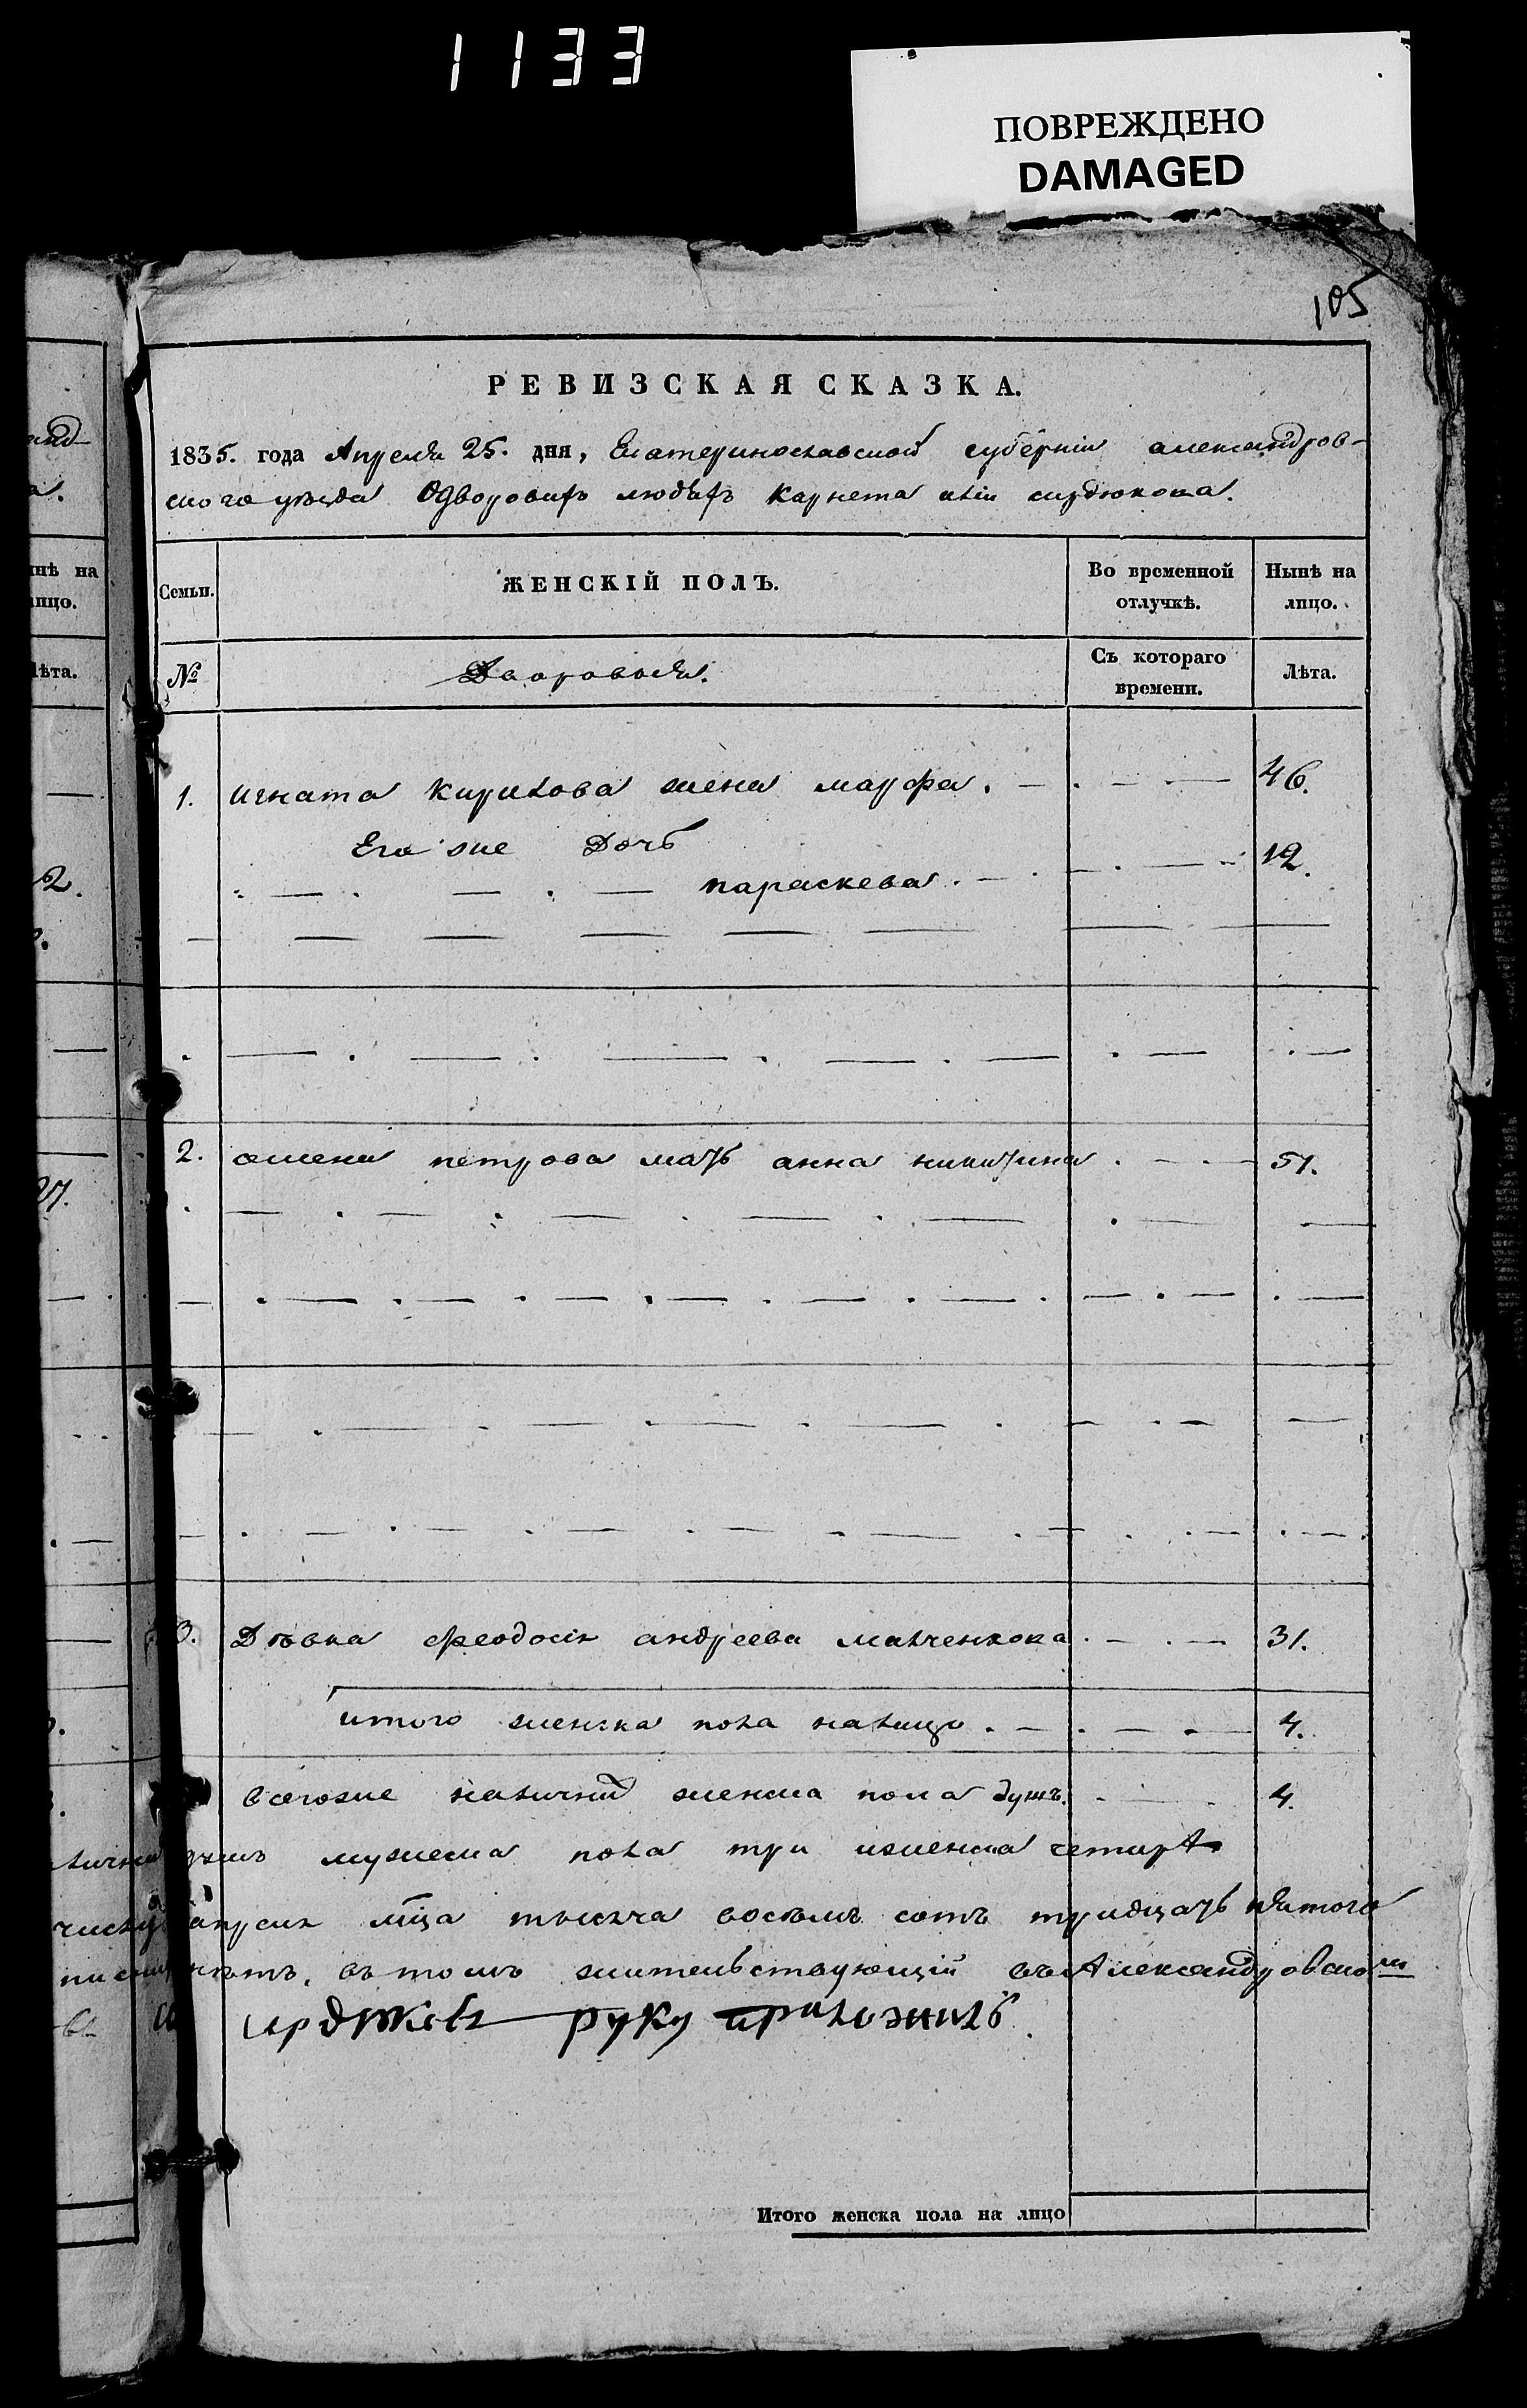 1133
ПОВРЕЖДЕНО
DAMAGED
105
РЕВИЗСКАЯ СКАЗКА.
1835. года Апреля 25. дня, Екатеринославской губерніи александров-
ского уѣзда Одворовыхъ людѣхъ Карнета сирдюкова.
Семьи.
ЖЕНСКІЙ ПОЛЪ.
Во временной отлучкѣ.
Нынѣ на лицо.
№
Дворовыя.
Съ котораго времени.
Лѣта.
1. игната кирилова жена марфа. 46.
Его же Дочь 12.
параскева.
2. семена петрова мать анна никитина 51.
3. Дѣвка феодосія андреева 31.
итого женска пола налицо. 4.
всегоже наличнй женска пола душъ. 4.
душъ мужеска пола три иженска четыре
апреля мца тысяча восемь сотъ тридцать пятого
нѣтъ. въ томъ жительствующій въ Александровском
руку приложилъ
Итого женска пола на лицо
нѣ на
лицо.
Лѣта.
2.
27.